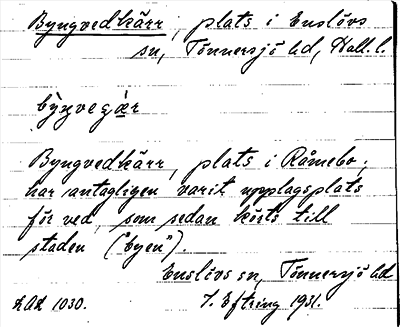 Byngvedkärr, plats i Enslövs
sn, Tönnersjö hd, Hall. l.
Byngvedkärr, plats i Råmebo;
har antagligen varit upplagsplats
för ved, som sedan körts till
staden ("byen").
Enslövs sn, Tönnersjö hd
7. Eftring 1931.